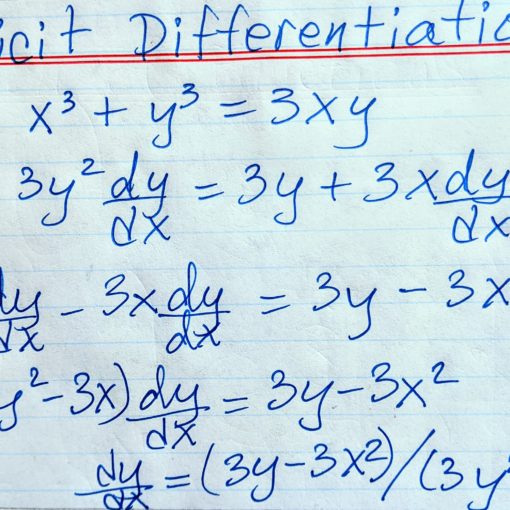 icit Differentiatio
x³ + y³ = 3xy
3y² dy/dx = 3y + 3x dy/dx
dy/dx - 3x dy/dx = 3y - 3x
y² - 3x) dy/dx = 3y - 3x²
dy/dx = (3y - 3x²)/(3y²